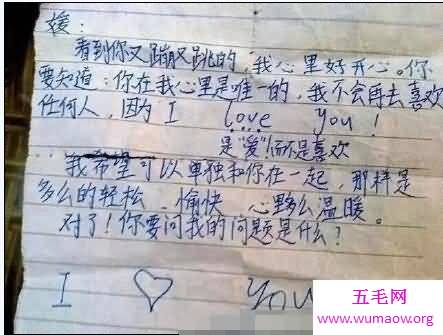 媛：
看到你又蹦又跳的，我心里好开心。你
要知道：你在我心里是唯一的，我不会再去喜欢
任何人，因为 I love you！
是“爱”而不是喜欢
我希望可以单独和你在一起，那样是
多么的轻松、愉快 心野么温暖。
对了！你要问我的问题是什么？
I ♡ You
五毛网
www.wumaow.org